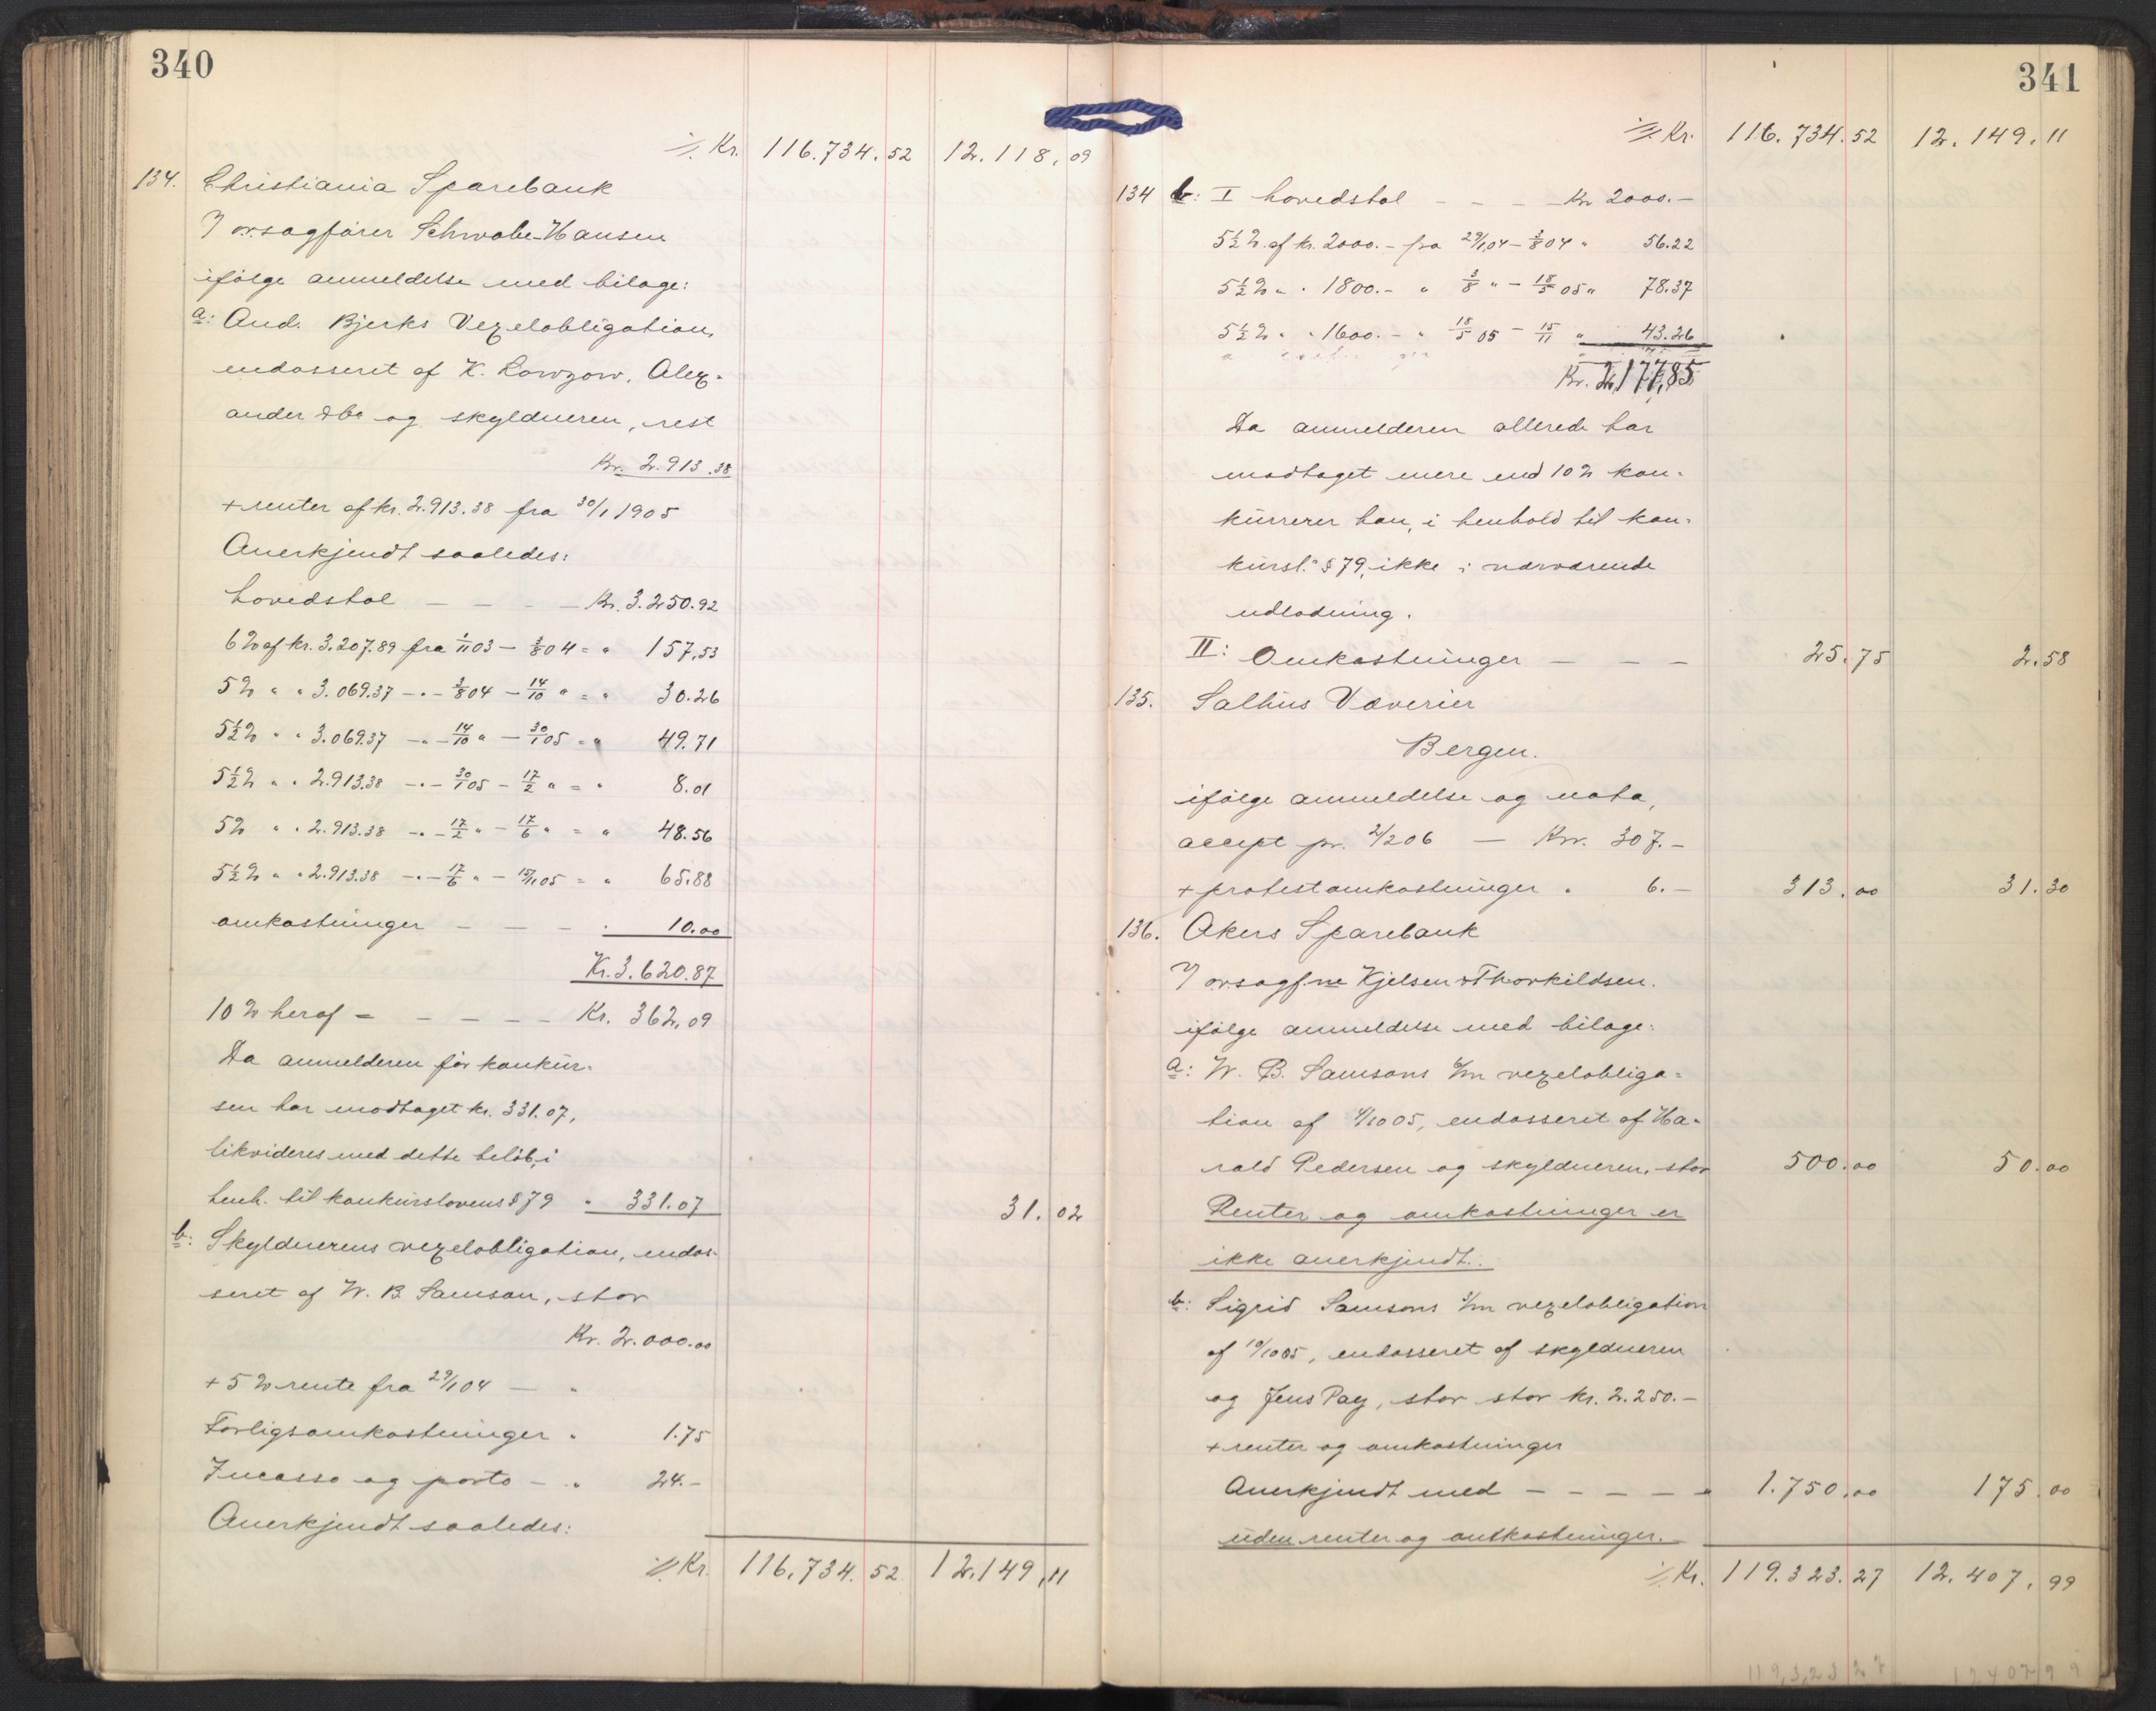 340
⁒ Kr. 116.734.52 12.118.09
134. Christiania Sparebank
v/ orsagfører Schwabe-Hansen
ifølge anmeldelse med bilage:
a: And. Bjerks Vexelobligation,
endosseret af K. Rowzow, Alex-
ander Obe og skyldneren, rest
Kr. 2.913.38
+ renter af kr. 2.913.38 fra 30/1 1905
Anerkjendt saaledes:
hovedstol — — — Kr. 3.250.92
6 % af kr. 3.207.89 fra 1/11 03 — 3/8 04 = " 157,53
5 % " " 3.069.37 -"- 3/8 04 — 14/10 " = " 30.26
5½ % " " 3.069.37 -"- 14/10 " — 30/1 05 = " 49.71
5½ % " " 2.913.38 -"- 30/1 05 — 17/2 " = " 8.01
5 % " " 2.913.38 -"- 17/2 " — 17/6 " = " 48.56
5½ % " " 2.913.38 -"- 17/6 " — 15/11 05 = " 65.88
omkostninger — — — " 10.00
Kr. 3.620.87
10 % heraf = — — — — Kr. 362,09
Da anmelderen før konkur-
sen har modtaget kr. 331.07,
likvideres med dette beløb, i
henh. til konkurslovens § 79 " 331.07 31.02
b: Skyldnerens vexelobligation, endos-
seret af W. B. Samson, stor
Kr. 2.000.00
+ 5 % rente fra 29/1 04 — "
Forligsomkostninger " 1.75
Incasso og porto — " 24.-
Anerkjendt saaledes:
⁒ Kr. 116.734.52 12.149,11
341
⁒ Kr. 116.734.52 12.149.11
134 b: I hovedstol — — — Kr 2000.-
5½ % af kr. 2000.- fra 29/1 04 — 3/8 04 " 56.22
5½ % " " 1800.- " 3/8 " — 18/5 05 " 78.37
5½ % " " 1600.- " 18/5 05 — 15/11 " 43.26
Kr. 2,177,85
Da anmelderen allerede har
modtaget mere end 10 % kon-
kurrerer han, i henhold til kon-
kursl. § 79, ikke i nærværende
udlodning.
II: Omkostninger — — — 25.75 2.58
135. Salhus Væverier
Bergen.
ifølge anmeldelse og nota,
accept pr. 2/2 06 — Kr. 307.-
+ protestomkostninger " 6.- 313.00 31.30
136. Akers Sparebank
v/ orsagf.ne Kjelsen & Thorkildsen.
ifølge anmeldelse med bilage:
a: W. B. Samsons 6/m vexelobliga-
tion af 4/10 05, endosseret af Ha-
rald Pedersen og skyldneren, stor 500.00 50.00
Renter og omkostninger er
ikke anerkjendt.
b: Sigrid Samsons 3/m vexelobligation
af 10/10 05, endosseret af skyldneren
og Jens Pay, stor stor kr. 2.250.-
+ renter og omkostninger
Anerkjendt med — — — — 1.750.00 175.00
uden renter og omkostninger.
⁒ Kr. 119.323.27 12.407,99
119,323 27 12407 99